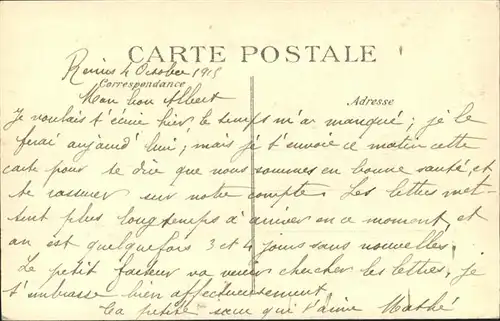 CARTE POSTALE
Reims 4 Octobre 1915
Correspondance
Adresse
Mon bon Albert
Je voulais t'écrire hier le temps m'a manqué ; je le
ferai aujourd'hui ; mais je t'envoie ce matin cette
carte pour te dire que nous sommes en bonne santé, et
te rassurer sur notre compte. Les lettres met-
tent plus longtemps à arriver en ce moment, et
on est quelquefois 3 et 4 jours sans nouvelles.
Le petit facteur va venir chercher les lettres, je
t'embrasse bien affectueusement
ta petite sœur qui t'aime Mathé